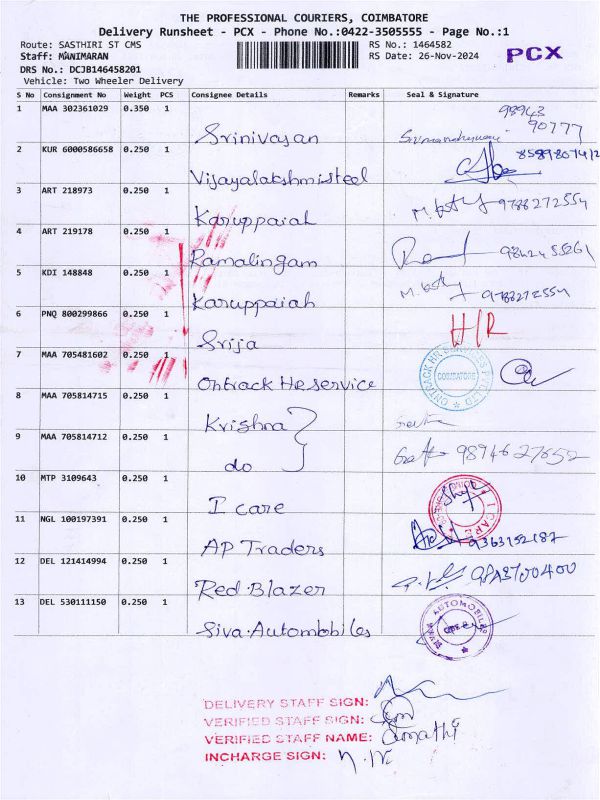 THE PROFESSIONAL COURIERS, COIMBATORE
Delivery Runsheet - PCX - Phone No.:0422-3505555 - Page No.:1
Route: SASTHIRI ST CMS RS No.: 1464582
Staff: MANIMARAN RS Date: 26-Nov-2024 PCX
DRS No.: DCJB146458201
Vehicle: Two Wheeler Delivery
S No Consignment No Weight PCS Consignee Details Remarks Seal & Signature
1 MAA 302361029 0.350 1 Srinivasan 98943 90777
2 KUR 6000586658 0.250 1 Vijayalakshmisteel
3 ART 218973 0.250 1 Karuppaiah 9788272554
4 ART 219178 0.250 1 Ramalingam
5 KDI 148848 0.250 1 Karuppaiah 9788272554
6 PNQ 800299866 0.250 1 Srija H/R
7 MAA 705481602 0.250 1 Ontrack HR service COIMBATORE
8 MAA 705814715 0.250 1 Krishna
9 MAA 705814712 0.250 1 do 9894627652
10 MTP 3109643 0.250 1 I care I CARE
11 NGL 100197391 0.250 1 AP Traders 9363152187
12 DEL 121414994 0.250 1 Red.Blazer
13 DEL 530111150 0.250 1 Siva.Automobiles
DELIVERY STAFF SIGN:
VERIFIED STAFF SIGN:
VERIFIED STAFF NAME:
INCHARGE SIGN: